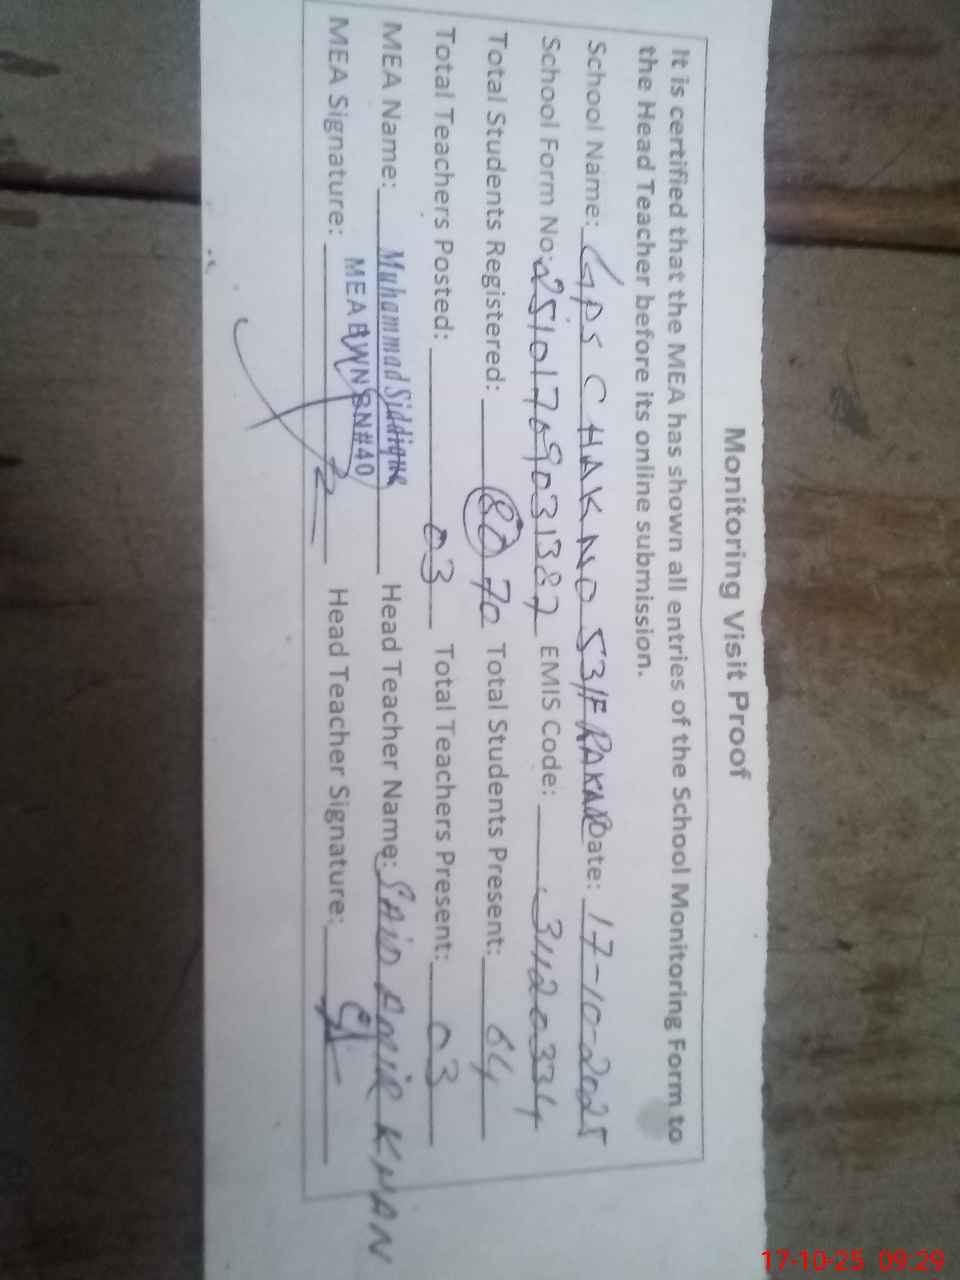 Monitoring Visit Proof
It is certified that the MEA has shown all entries of the School Monitoring Form to
the Head Teacher before its online submission.
School Name: GPS CHAK NO 53/F Date: 17-10-2025
School Form No: 25101769031387 EMIS Code: 31120334
Total Students Registered: 80 70 Total Students Present: 64
Total Teachers Posted: 03 Total Teachers Present: 03
MEA Name: Muhammad Siddique Head Teacher Name: SAID AMIR KHAN
MEA BWN BN#40
MEA Signature: Head Teacher Signature:
17-10-25 09:29